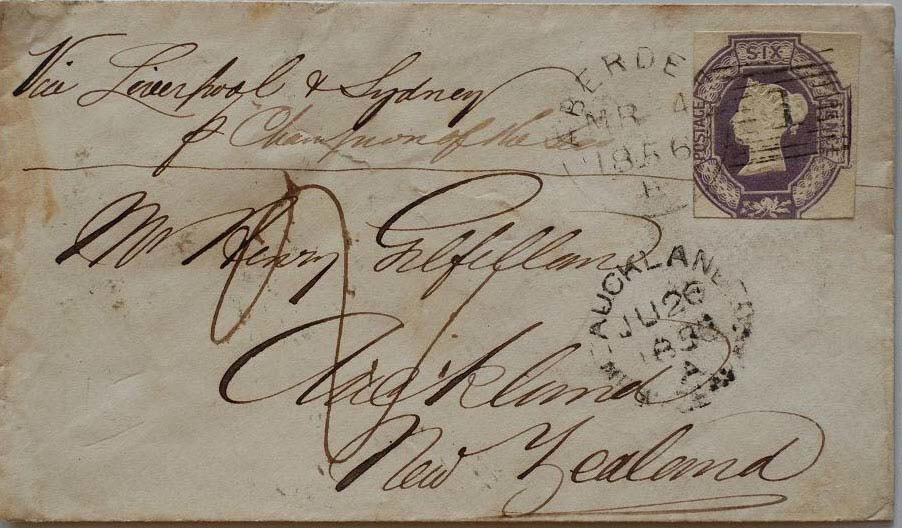 Via Liverpool & Sydney
p Champion of the Seas
Mr Henry Gilfillan
Auckland
New Zealand
ABERDEEN
MR 4
1856
SIX
POSTAGE
PENCE
AUCKLAND
JU 26
1856
A
NEW ZEALAND